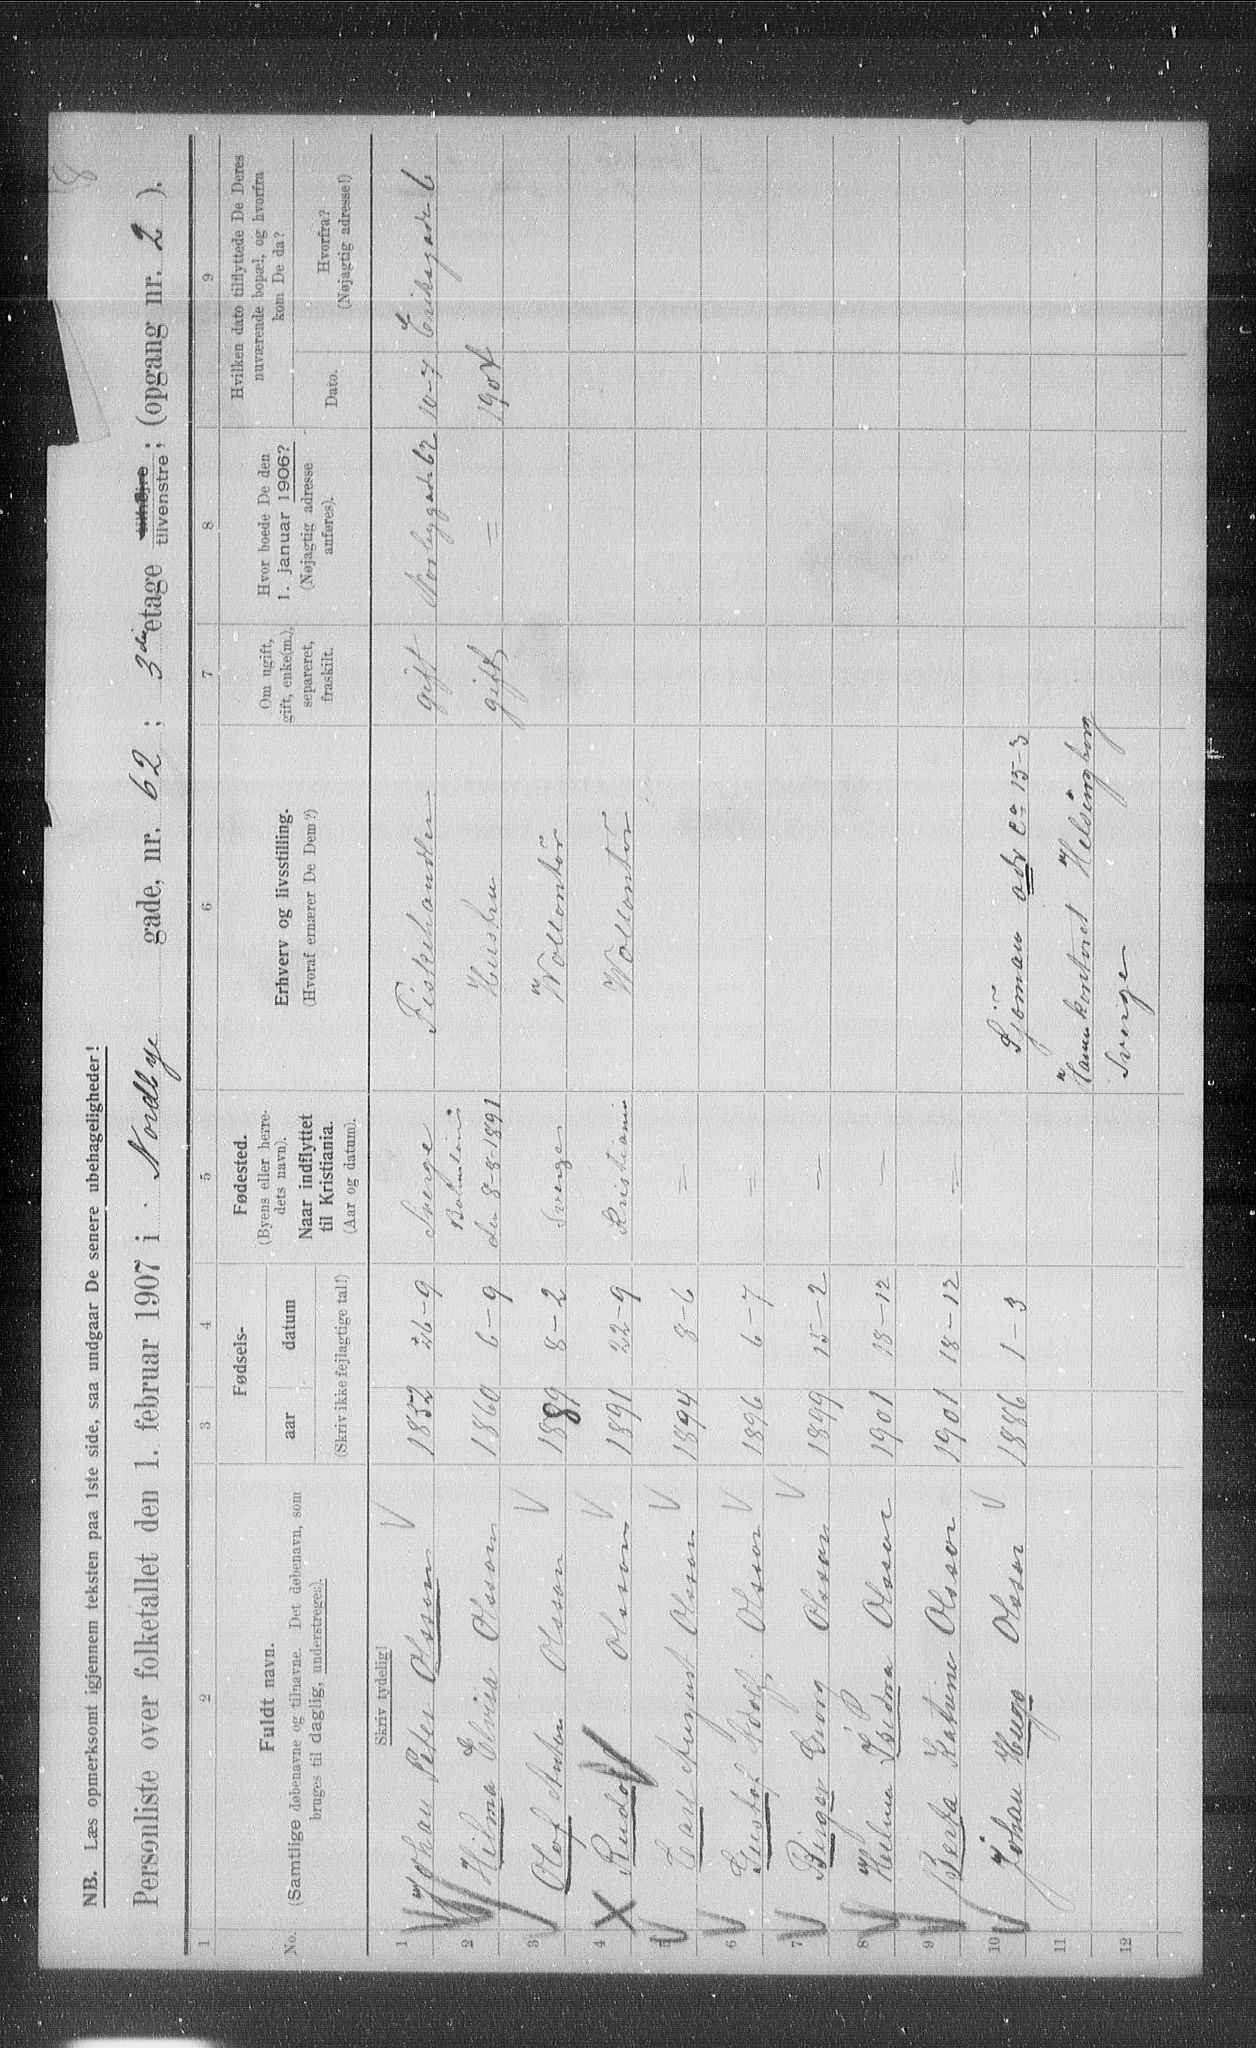 8
NB. Læs opmerksomt igjennem teksten paa 1ste side, saa undgaar De senere ubehageligheder!
Personliste over folketallet den 1. februar 1907 i Nordbye gade, nr. 62; 3die etage tilhøjre tilvenstre; (opgang nr. 2).
1 2 3 4 5 6 7 8 9
No.
Fuldt navn.
(Samtlige døbenavne og tilnavne. Det døbenavn, som
bruges til daglig, understreges).
Fødsels-
aar datum
(Skriv ikke fejlagtige tal!)
Fødested.
(Byens eller herre-
dets navn).
Naar indflyttet
til Kristiania.
(Aar og datum).
Erhverv og livsstilling.
(Hvoraf ernærer De Dem?)
Om ugift,
gift, enke(m.),
separeret,
fraskilt.
Hvor boede De den
1. januar 1906?
(Nøjagtig adresse
anføres).
Hvilken dato tilflyttede De Deres
nuværende bopæl, og hvorfra
kom De da?
Dato.
Hvorfra?
(Nøjagtig adresse!)
Skriv tydelig!
1 Johan Peter Olsson 1852 26-9 Sverge Fiskehandler gift Norbygade 62 10-7 Eriksgade 6
Bohuslän
2 Hilma Elvira Olsson 1860 6-9 den 8-8-1891 Hustru gift = 1904
3 Olof Anton Olsson 1889 8-2 Sverge Wollontör
4 Rudolf Olsson 1891 22-9 Kristiania Wollontör
5 Carl August Olsson 1894 8-6 =
6 Gustaf Adolf Olsson 1896 6-7 =
7 Birger Georg Olsson 1899 15-2 =
8 Helena Isidora Olsson 1901 18-12 =
9 Berta Katrine Olsson 1901 18-12 =
10 Johan Hugo Olsson 1886 1-3 Sjöman adr ca 15-3
11 Hamnkontoret Helsingborg
12 Sverige